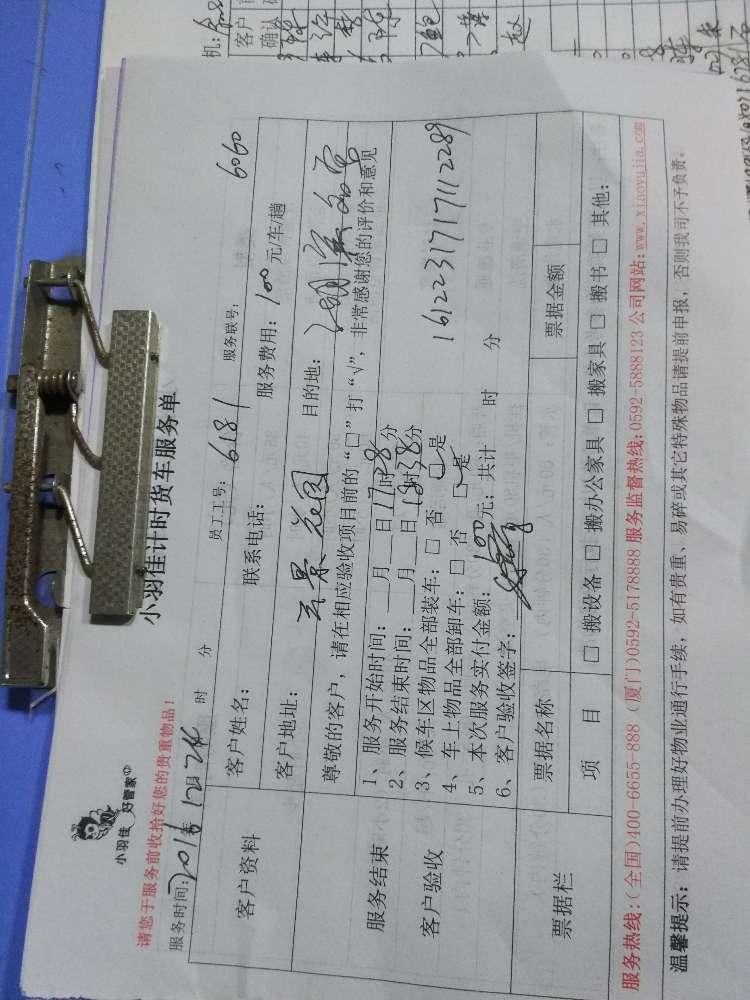 小羽佳 好管家
小羽佳计时货车服务单
请您于服务前收拾好您的贵重物品!
服务时间: 年12月24 时 分 员工工号: 6181 服务联号: 6060
客户资料
客户姓名: 联系电话: 服务费用: 100元/车/趟
客户地址: 景花园 目的地: 湖
尊敬的客户,请在相应验收项目前的“□”打“√”,非常感谢您的评价和意见
服务结束
客户验收
1、服务开始时间: 月 日17时28分
2、服务结束时间: 月 日18时38分
3、候车区物品全部装车: □ 否 □ 是
4、车上物品全部卸车: □ 否 □ 是
5、本次服务实付金额: 100元; 共计 时 分
6、客户验收签字:
1612231717112289
票据栏
票据名称 票据金额
项 目 □ 搬设备 □ 搬办公家具 □ 搬家具 □ 搬书 □ 其他:
服务热线:(全国)400-6655-888 (厦门)0592-5178888 服务监督热线:0592-5888123 公司网站:www.xiaoyujia.com
温馨提示: 请提前办理好物业通行手续,如有贵重、易碎或其它特殊物品请提前申报,否则我司不予负责。